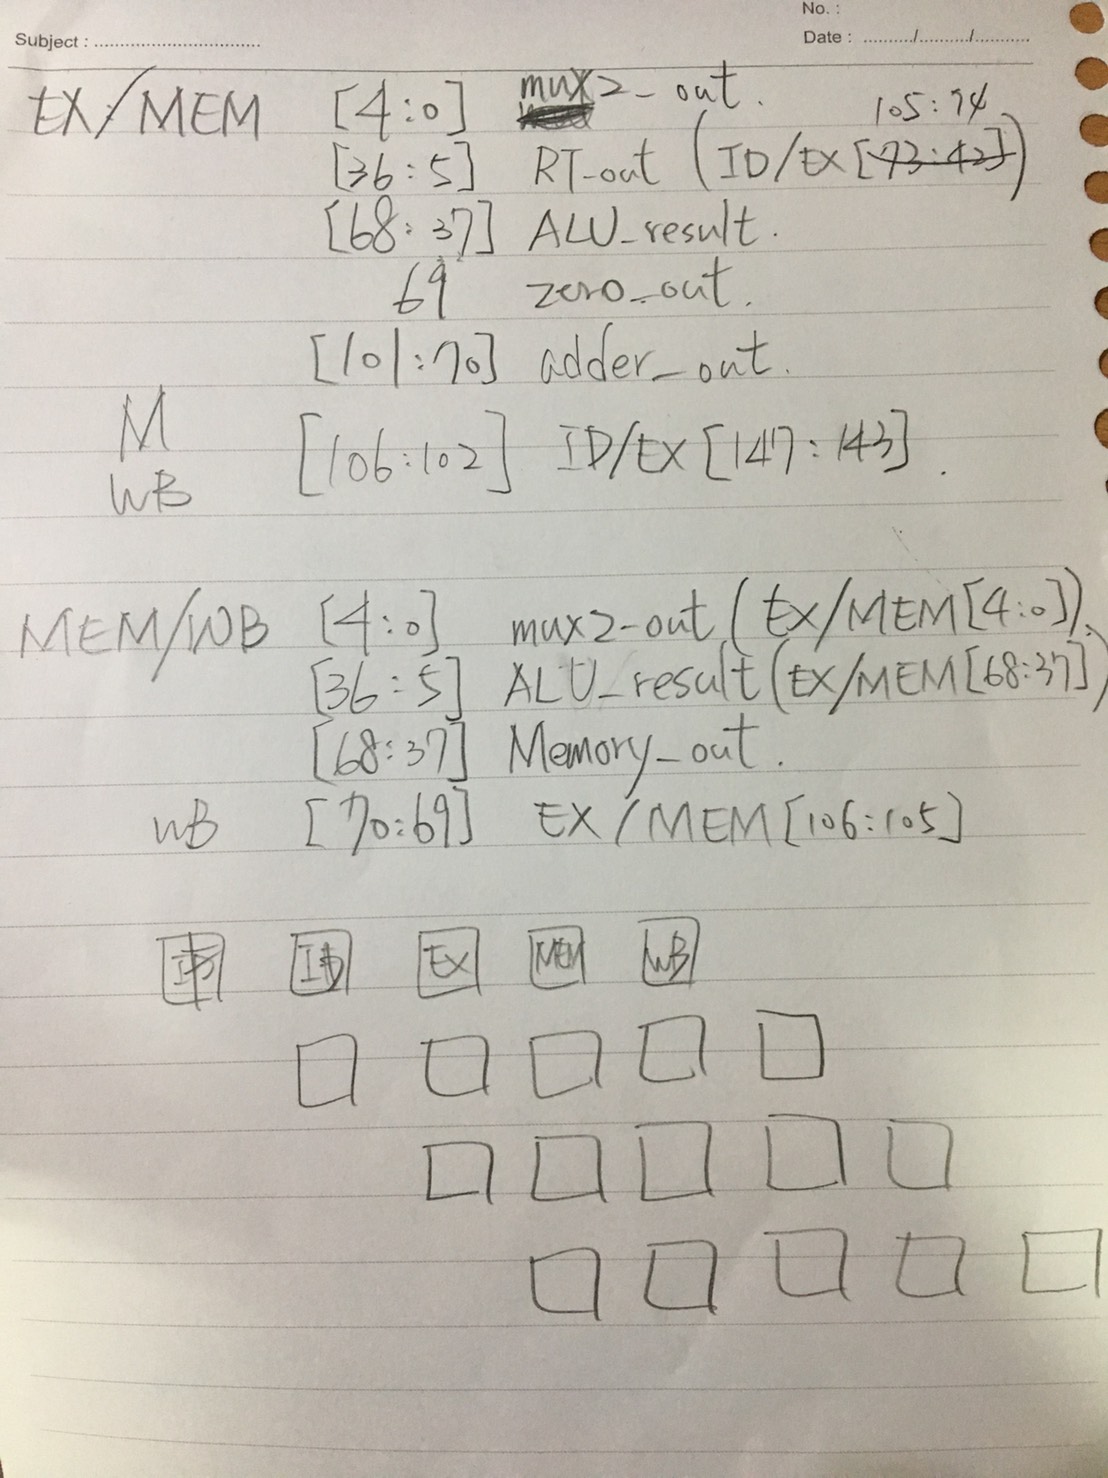 No. :
Subject : Date : / /
EX/MEM [4:0] mux2_out.
105:74
[36:5] RT_out (ID/EX[73:42])
[68:37] ALU_result.
69 zero_out.
[101:70] adder_out.
M
[106:102] ID/EX[147:143].
WB
MEM/WB [4:0] mux2-out (EX/MEM[4:0]).
[36:5] ALU_result(EX/MEM[68:37])
[68:37] Memory_out.
WB [70:69] EX/MEM[106:105]
ID EX MEM WB